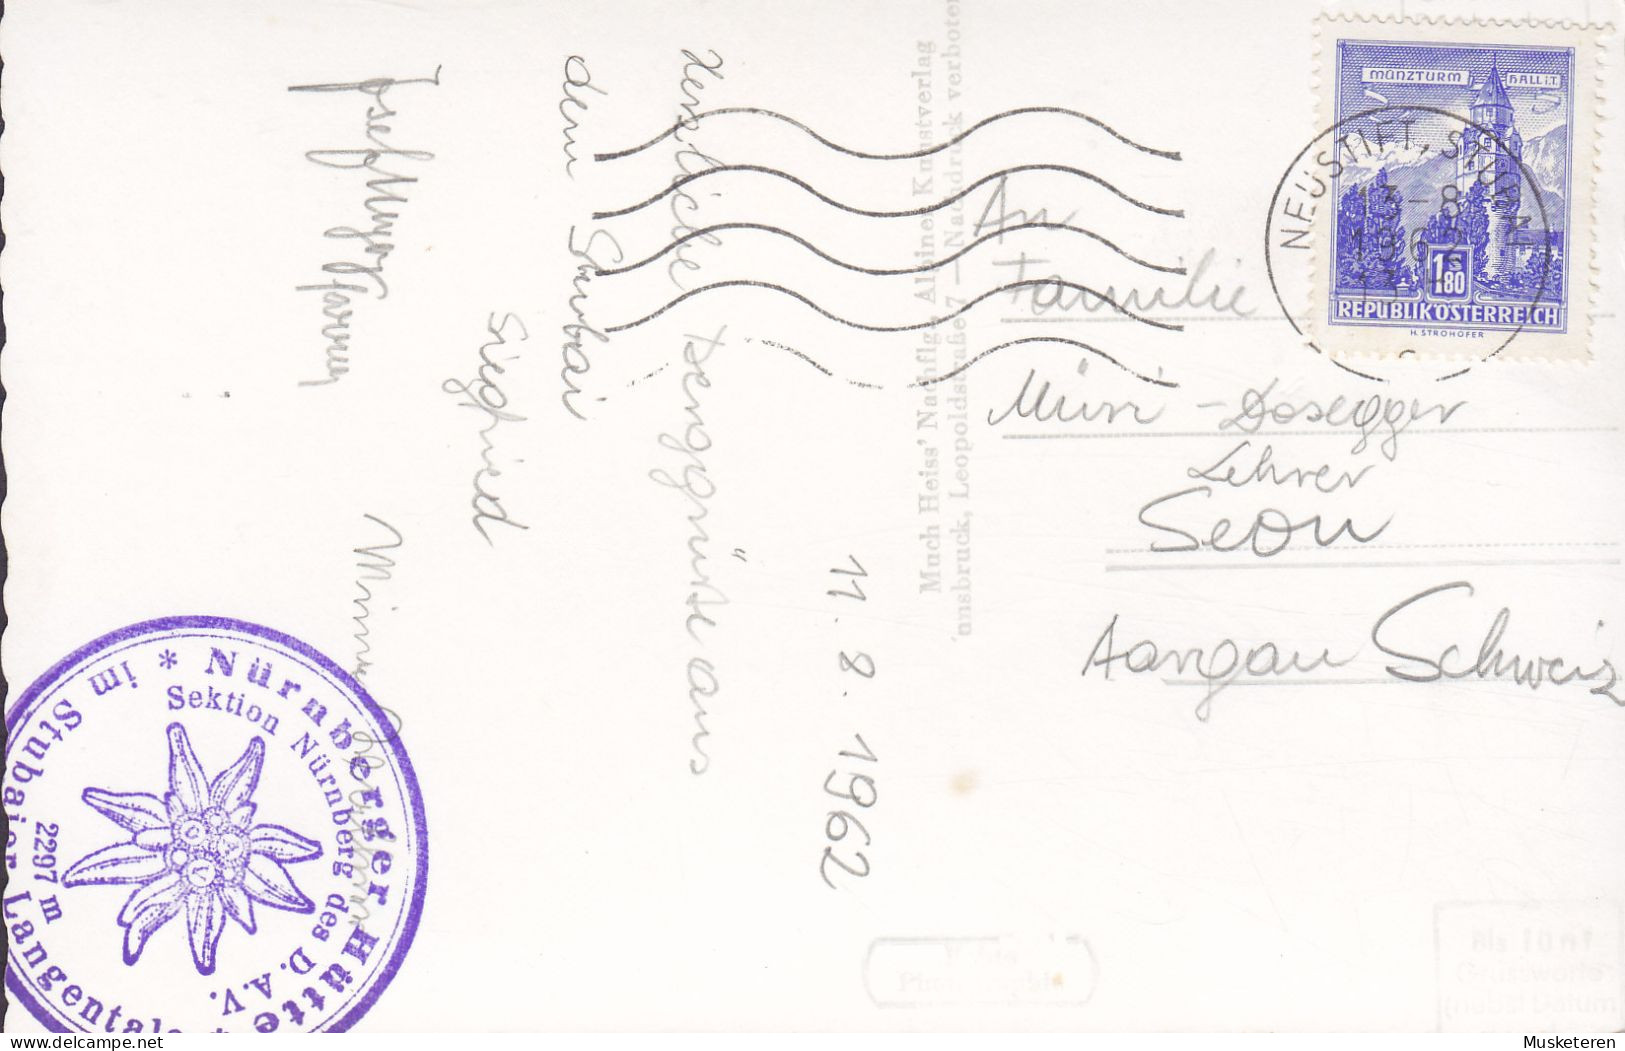 11. 8. 1962
Herzliche Berggrüße aus
dem Stubai
Siegfried
Josef
Minna
Much Heiss' Nachflg., Alpiner Kunstverlag
Innsbruck, Leopoldstraße 7 — Nachdruck verboten
An
Familie
Müri - Dössegger
Lehrer
Seon
Aargau Schweiz
MÜNZTURM HALL i.T.
1.80
REPUBLIK ÖSTERREICH
H. STROHOFER
NEUSTIFT, STUBAI
13-8
1962
* Nürnberger Hütte *
Sektion Nürnberg des D.A.V.
im Stubaier Langental
2297 m
Echte
Photographie
als fünf
Grußworte
(nebst Datum
Musketeren